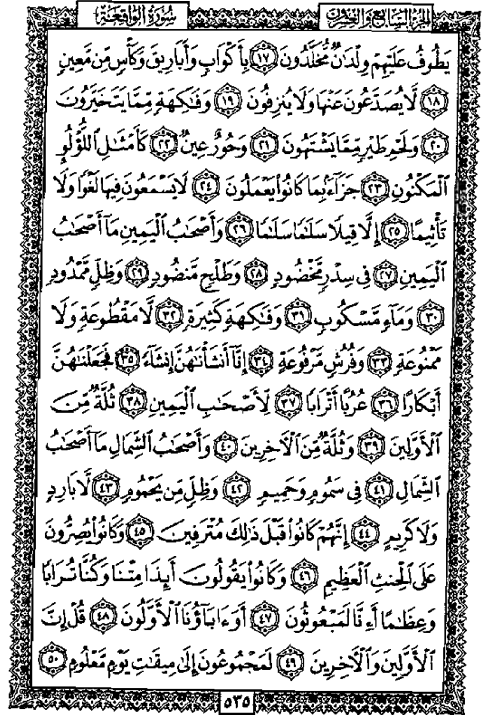 الجزء السابع والعشرون سورة الواقعة
يَطُوفُ عَلَيْهِمْ وِلْدَٰنٌ مُّخَلَّدُونَ ١٧ بِأَكْوَابٍ وَأَبَارِيقَ وَكَأْسٍ مِّن مَّعِينٍ
١٨ لَّا يُصَدَّعُونَ عَنْهَا وَلَا يُنزِفُونَ ١٩ وَفَٰكِهَةٍ مِّمَّا يَتَخَيَّرُونَ
٢٠ وَلَحْمِ طَيْرٍ مِّمَّا يَشْتَهُونَ ٢١ وَحُورٌ عِينٌ ٢٢ كَأَمْثَٰلِ اللُّؤْلُوِٕ
الْمَكْنُونِ ٢٣ جَزَآءًۢ بِمَا كَانُوا۟ يَعْمَلُونَ ٢٤ لَا يَسْمَعُونَ فِيهَا لَغْوًا وَلَا
تَأْثِيمًا ٢٥ إِلَّا قِيلًا سَلَٰمًا سَلَٰمًا ٢٦ وَأَصْحَٰبُ الْيَمِينِ مَآ أَصْحَٰبُ
الْيَمِينِ ٢٧ فِي سِدْرٍ مَّخْضُودٍ ٢٨ وَطَلْحٍ مَّنضُودٍ ٢٩ وَظِلٍّ مَّمْدُودٍ
٣٠ وَمَآءٍ مَّسْكُوبٍ ٣١ وَفَٰكِهَةٍ كَثِيرَةٍ ٣٢ لَّا مَقْطُوعَةٍ وَلَا
مَمْنُوعَةٍ ٣٣ وَفُرُشٍ مَّرْفُوعَةٍ ٣٤ إِنَّآ أَنشَأْنَٰهُنَّ إِنشَآءً ٣٥ فَجَعَلْنَٰهُنَّ
أَبْكَارًا ٣٦ عُرُبًا أَتْرَابًا ٣٧ لِّأَصْحَٰبِ الْيَمِينِ ٣٨ ثُلَّةٌ مِّنَ
الْأَوَّلِينَ ٣٩ وَثُلَّةٌ مِّنَ الْءَاخِرِينَ ٤٠ وَأَصْحَٰبُ الشِّمَالِ مَآ أَصْحَٰبُ
الشِّمَالِ ٤١ فِي سَمُومٍ وَحَمِيمٍ ٤٢ وَظِلٍّ مِّن يَحْمُومٍ ٤٣ لَّا بَارِدٍ
وَلَا كَرِيمٍ ٤٤ إِنَّهُمْ كَانُوا۟ قَبْلَ ذَٰلِكَ مُتْرَفِينَ ٤٥ وَكَانُوا۟ يُصِرُّونَ
عَلَى الْحِنثِ الْعَظِيمِ ٤٦ وَكَانُوا۟ يَقُولُونَ أَئِذَا مِتْنَا وَكُنَّا تُرَابًا
وَعِظَٰمًا أَءِنَّا لَمَبْعُوثُونَ ٤٧ أَوَءَابَآؤُنَا الْأَوَّلُونَ ٤٨ قُلْ إِنَّ
الْأَوَّلِينَ وَالْءَاخِرِينَ ٤٩ لَمَجْمُوعُونَ إِلَىٰ مِيقَٰتِ يَوْمٍ مَّعْلُومٍ ٥٠
٥٣٥